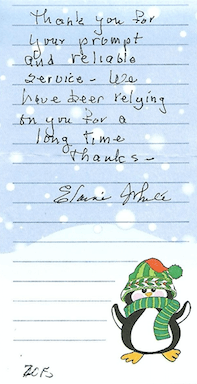 Thank you for
your prompt
and reliable
service - We
have been relying
on you for a
long time
Thanks -
Elaine